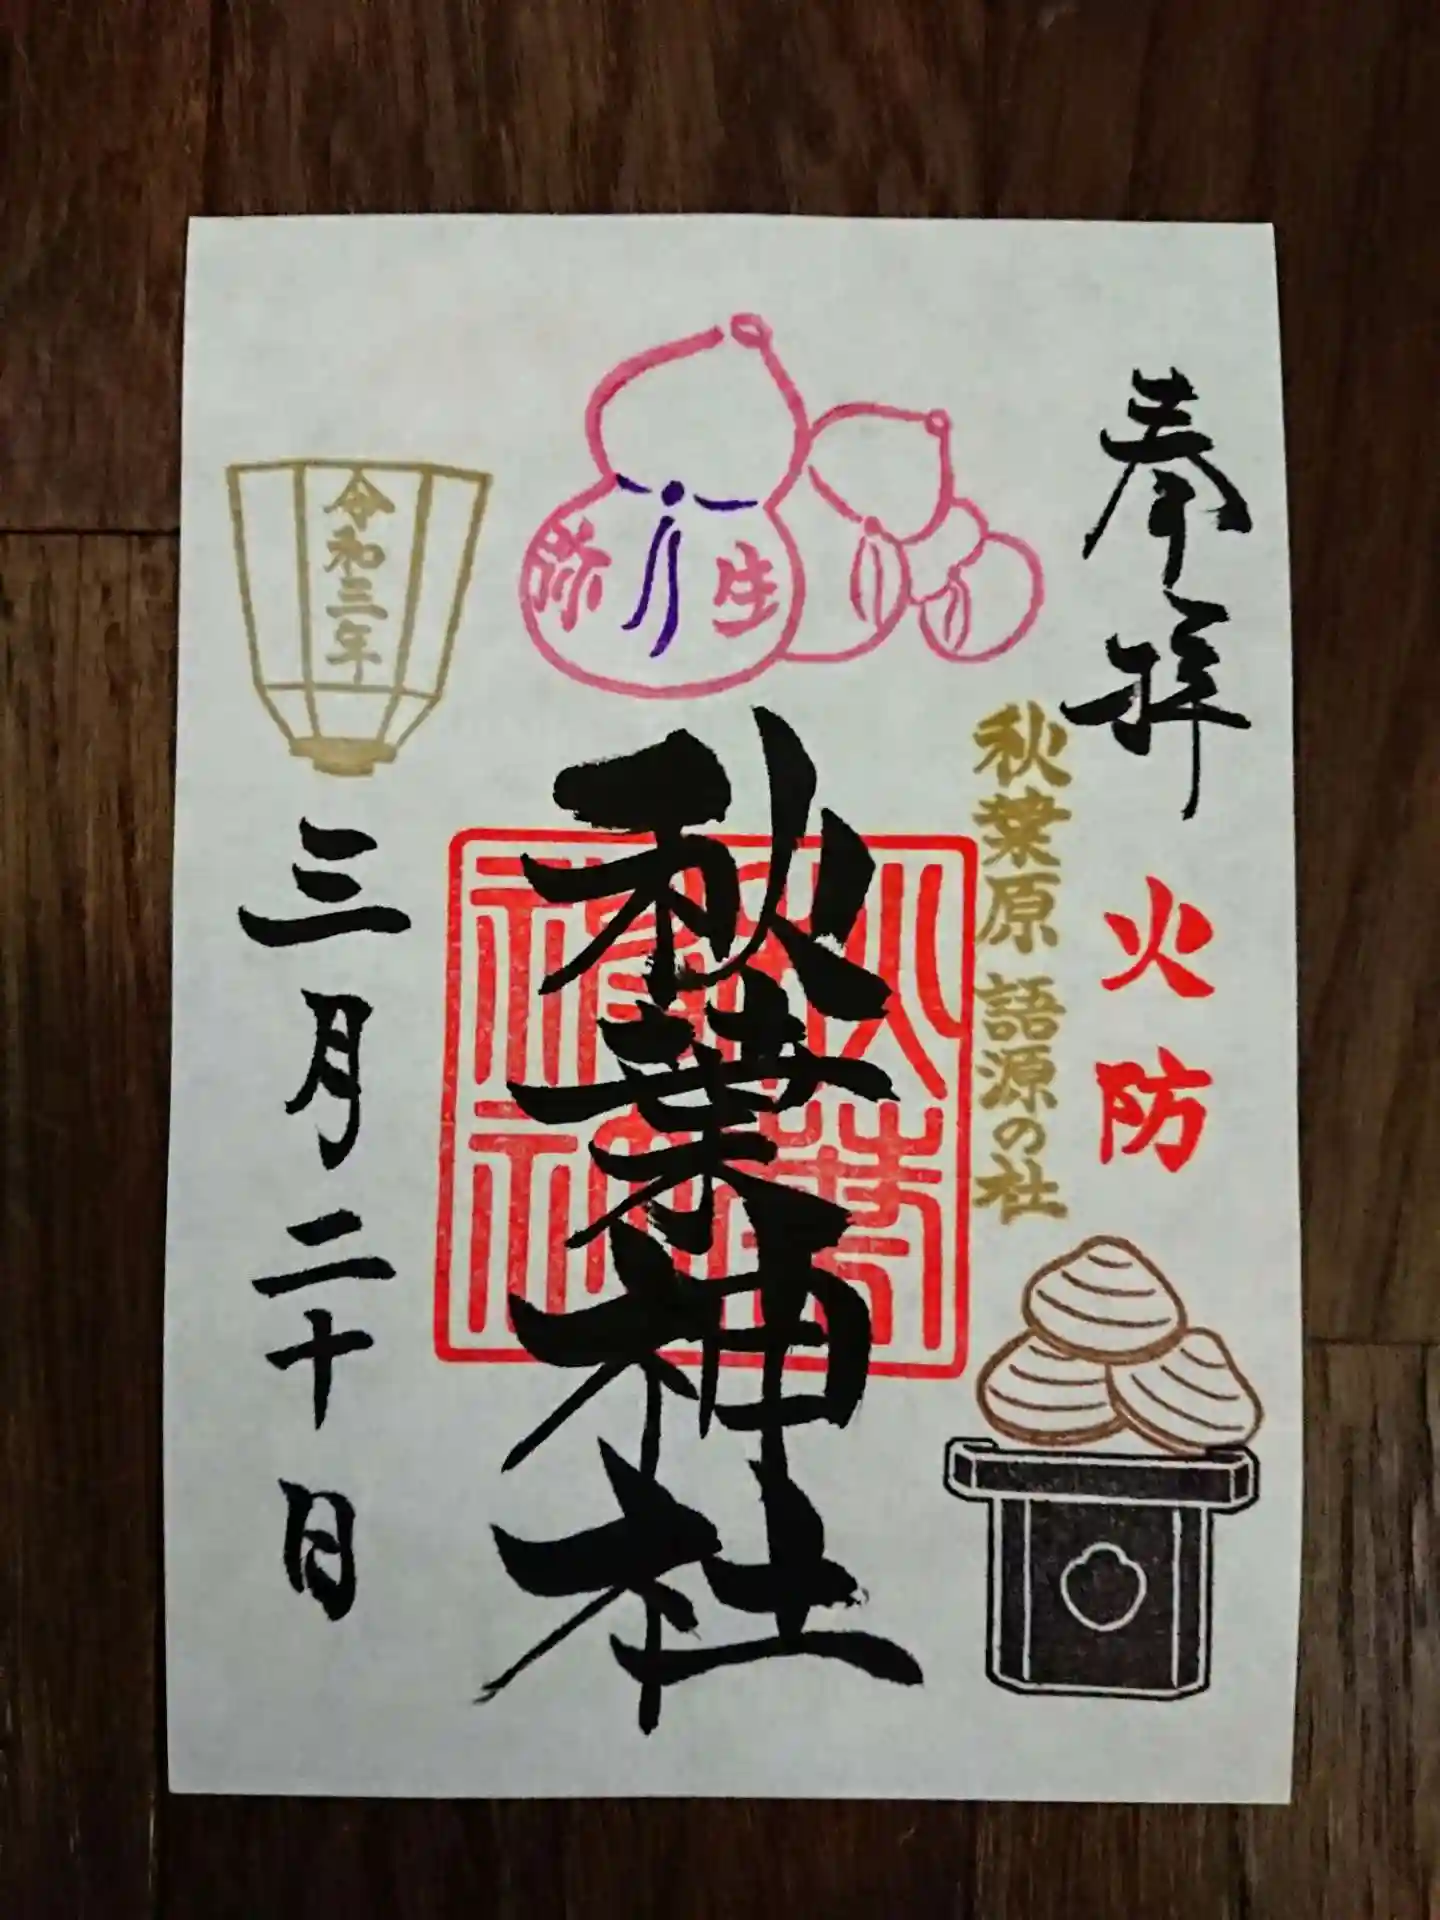 奉拝
火防
秋葉原 語源の社
弥生
秋葉神社
令和三年
三月二十日